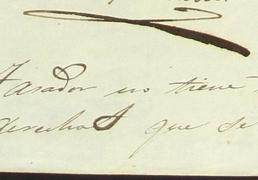 Tasador no tiene
derechos que se